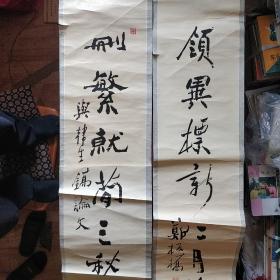 領異標新二月
鄭板橋
刪繁就簡三秋
與韓生鎬論文